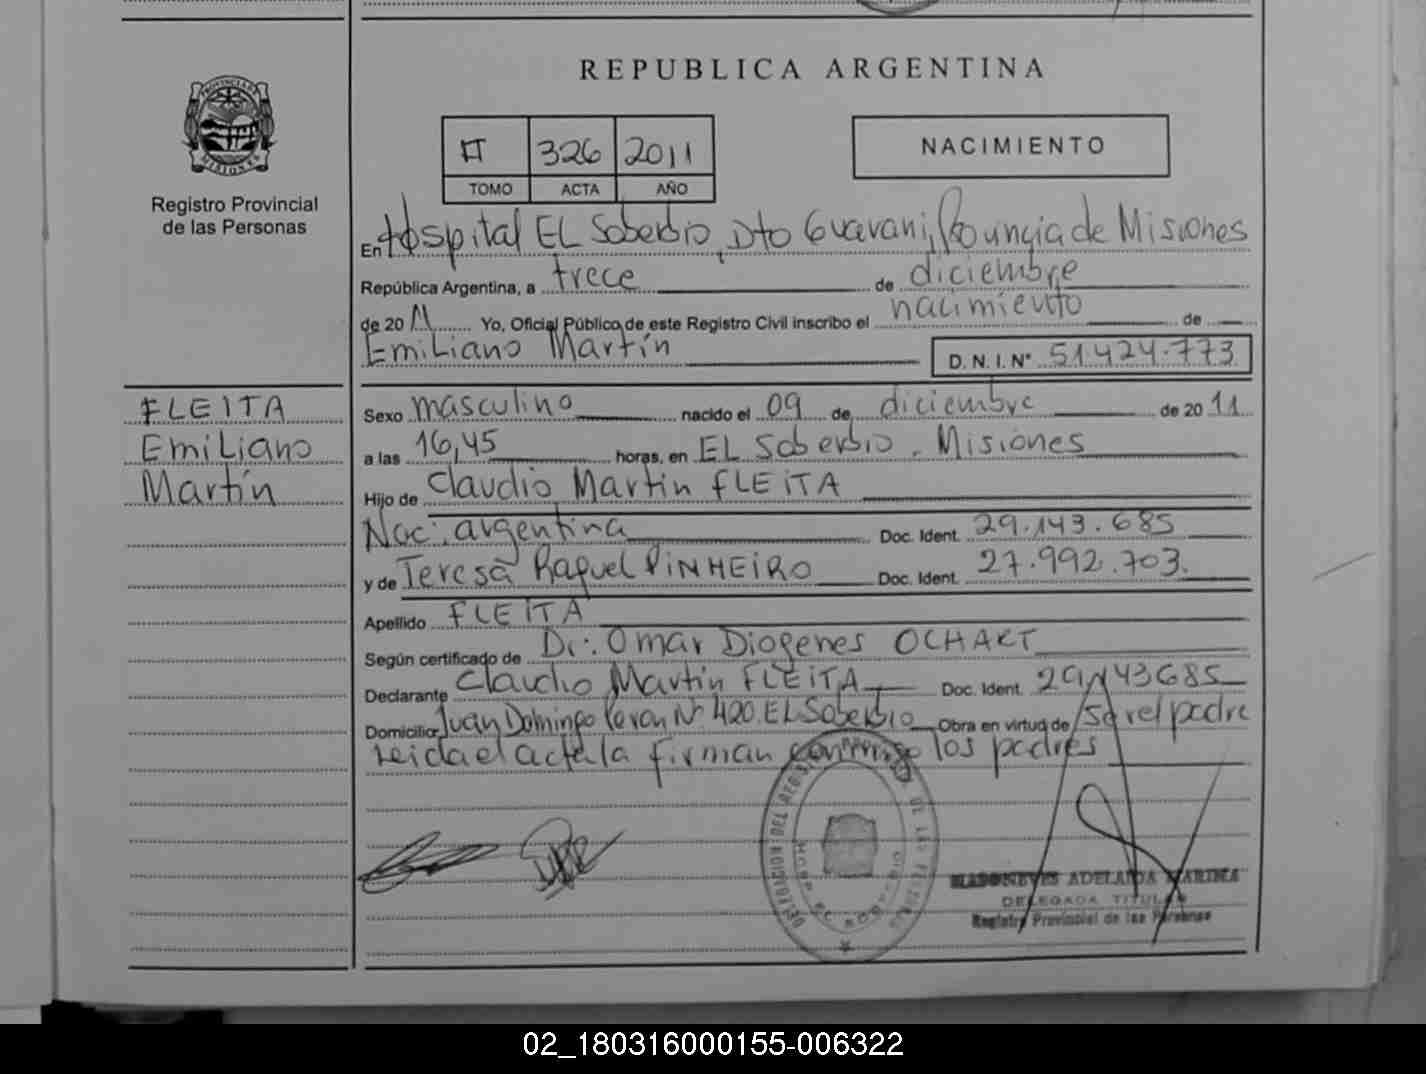 REPUBLICA ARGENTINA
PROVINCIA DE MISIONES
Registro Provincial
de las Personas
II 326 2011
TOMO ACTA AÑO
NACIMIENTO
En Hospital EL Soberbio, Dto Guarani, Provincia de Misiones
República Argentina, a trece de diciembre
de 2011 Yo, Oficial Público de este Registro Civil inscribo el nacimiento de
Emiliano Martín D. N. I. N° 51.424.773
FLEITA
Emiliano
Martín
Sexo masculino nacido el 09 de diciembre de 2011
a las 16,45 horas, en EL Soberbio, Misiones
Hijo de Claudio Martin FLEITA
Nac: argentina Doc. Ident. 29.143.685
y de Teresa Raquel PINHEIRO Doc. Ident. 27.992.703.
Apellido FLEITA
Según certificado de Dr: Omar Diogenes OCHART
Declarante Claudio Martin FLEITA Doc. Ident. 29143685
Domicilio Juan Domingo Peron N° 420. EL Soberbio Obra en virtud de ser el padre
Leida el acta la firman conmigo los padres
ADELAIDA MARINA
DELEGADA TITULAR
Registro Provincial de las Personas
02_180316000155-006322